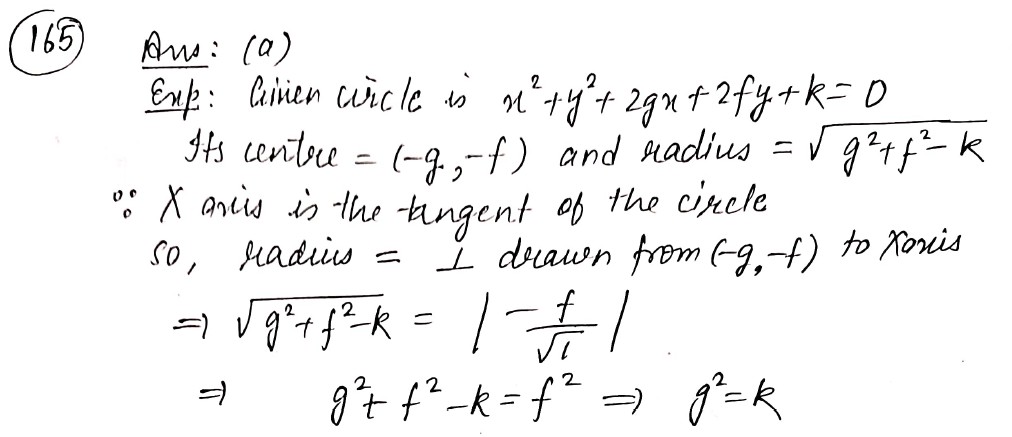 165 Ans: (a)
Exp: Given circle is x²+y²+2gx+2fy+k=0
Its centre = (-g,-f) and radius = √g²+f²-k
∵ X axis is the tangent of the circle
so, radius = ⊥ drawn from (-g,-f) to X axis
⇒ √g²+f²-k = |-f/√1|
⇒ g²+f²-k=f² ⇒ g²=k